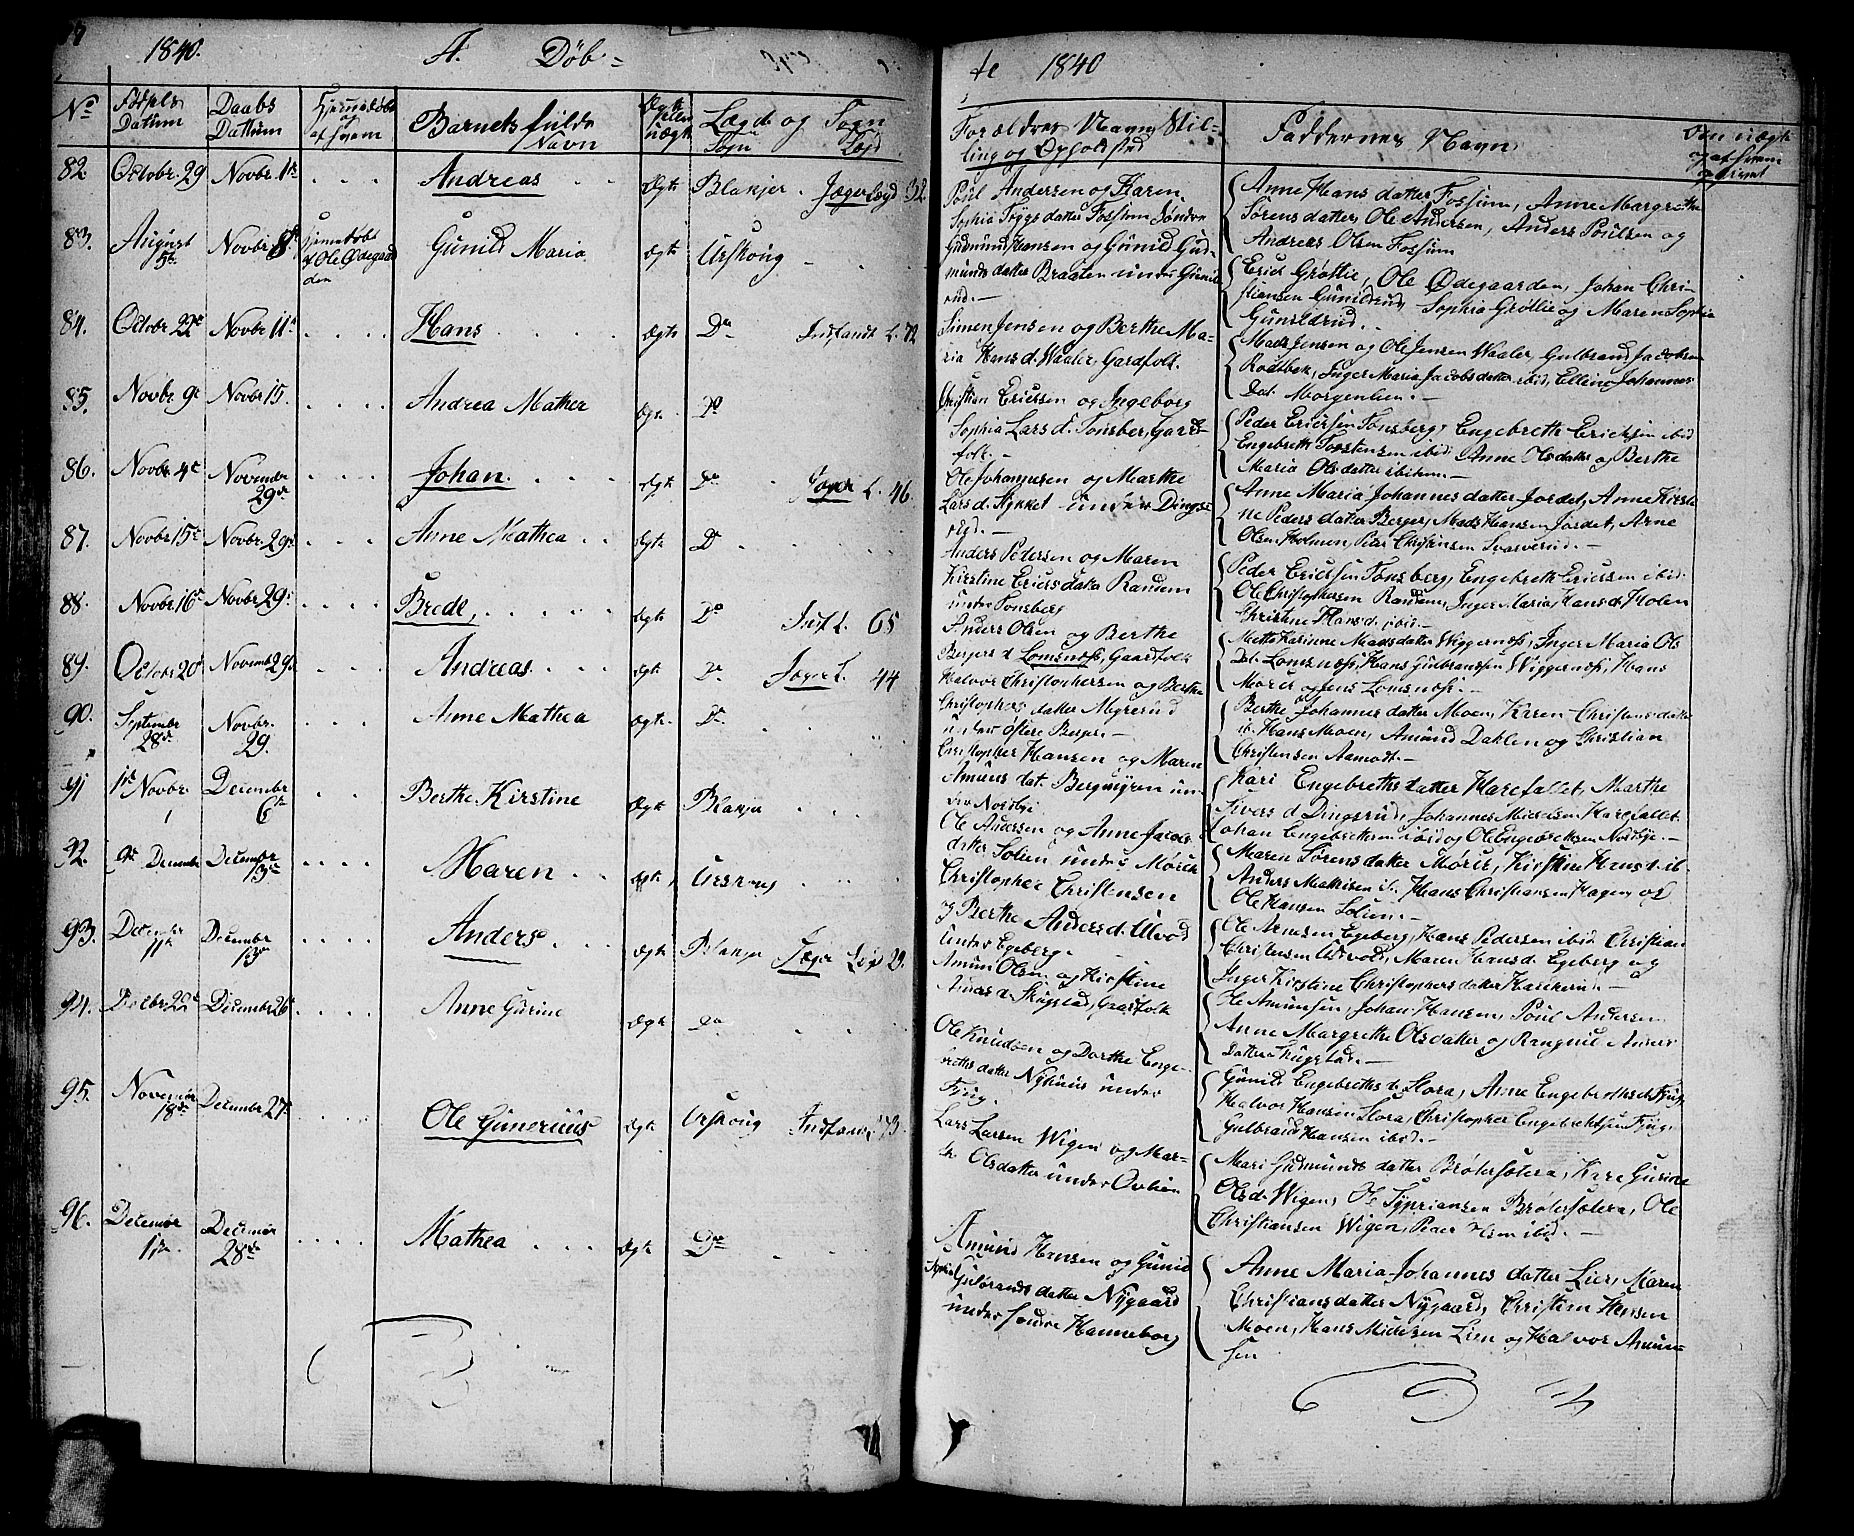 1840. A. Døb=
te 1840
No
Fødsels Datum
Daabs Dattum
Hjemmedøbt og af hvem
Barnets fulde Navn
Ægte eller uægte
Lægd og Sogn
Sogn Lægd
Forældres Navn, Stil-
ling og Opholdsted
Faddernes Navn
Om uægte og af hvem
82. Octobr. 29 Novbr. 1ste Andreas Ægte Blakjer. Jægerlægd 32.
Poul Andersen og Karen
Sophia Tygesdatter Fossum Søndre
Anne Hansdatter Fossum, Anne Margrethe
Sørensdatter, Ole Andersen, Anders Poulsen og
Andreas Olsen Fossum
83. August 5te Novbr. 8de Hjemmedøbt af Ole Ødegaarden Gunild Maria Ægte Urskoug
Gudmund Hansen og Gunild Gud-
mundsdatter Braaten under Gunild-
rud.—
Erich Grøtlie, Ole Ødegaarden, Johan Chri-
stiansen Gunildrud, Sophia Grøtlie og Maren Sophia
Gunildrud.
84. Octobr. 22de Novbr. 11te Hans Ægte Do Indfandt. L. 72
Simen Jensen og Berthe Ma-
ria Hansd. Waaler, Gardfolk.
Mads Jensen og Ole Jensen Waaler, Gulbrand Jacobsen
Rodsbak, Inger Maria Jacobsdatter ibid, Elline Johannes
Dat. Morgenlien.—
85. Novbr. 9de Novbr. 15. Andrea Mathea Ægte Do
Christian Ericksen og Ingeborg
Sophia Larsd. Tonsber, Gard-
folk.—
Peder Ericksen Tonsberg, Engebreth Ericksen ibid
Engebreth Torstensen ibid, Anne Olsdatter og Berthe
Maria Olsdatter ibidem.—
86. Novbr. 4de November 29de Johan. Ægte Do Jæger L. 46
Ole Johannesen og Marthe
Larsd. Stykket under Dings-
rud.—
Anne Maria Johannesdatter Jordet, Anne Kirsti-
ne Pedersdatter Berger, Mads Hansen Jordet, Arne
Olsen Holmen, Peer Christensen Svarverud.—
87. Novbr. 15de Novbr. 29de Anne Mathea Ægte Do
Anders Pedersen og Maren
Kirstine Ericsdatter Randem
under Tonsberg
Peder Ericksen Tonsberg, Engebreth Ericksen ibid.
Ole Christophersen Randem, Inger Maria Hansd. Holen
Christine Hansd. ibid.—
88. Novbr. 16de Novbr. 29de Brede, Ægte Do Inf L. 65
Anders Olsen og Berthe
Bergersd Lomsnæss, Gaardfolk
Mette Karinne Madsdatter Wiggernæss, Inger Maria Ols
Dat. Lomsnæss, Hans Gulbransen Wiggernæss, Hans
Morer og Jens Lomsnæss.—
89. Octobr. 20de Novemb. 29de Andreas Ægte Do Jæger L. 44
Halvor Christophersen og Berthe
Christophersdatter Myrerud
under Østere Berger.—
Berthe Johannesdatter Moen, Karen Christiansdatter
ib. Hans Moen, Amund Dahlen og Christian
Christensen Aamodt.—
90. September 28de Novbr. 29. Anne Mathea Ægte Do
Christopher Hansen og Maren
Amundsdat. Bergmyren un-
der Nordbye
Kari Engebrethsdatter Harefallet, Marthe
Siversd Dingsrud, Johannes Mickelsen Harefallet
Johan Engebrethsen ibid og Ole Engebrethsen Nordbye.—
91 1ste Novbr. 1 December 6te Berthe Kirstine Ægte Blakjer
Ole Andersen og Anne Jacobs
datter Solien under Morer
Maren Sørensdatter Morer, Kirstine Hansd. ib.
Anders Mathisen ib. Hans Christiansen Hagen, og
Ole Hansen Solien.—
92. 9de December December 13de Maren Ægte Urskoug
Christopher Christensen
og Berthe Andersd. Ulvod
under Egeberg.
Ole Arnesen Egeberg, Hans Pedersen ibid Christian
Christensen Ulvod, Maren Hansd. Egeberg og
Inger Kirstine Christophersdatter Haneherud.—
93. December 11te December 13de Anders Ægte Blakjer Jæger Lægd 29.
Amun Olsen og Kirstine
Andersd. Skuggstad, Gardfolk
Ole Amundsen, Johan Hansen, Poul Andersen
Anne Margrethe Olsdatter og Rangnil Anders
Datter Skuggstad.—
94. Decbr. 22de December 26de Anne Gurine Ægte Do
Ole Knudsen og Dorthe Enge-
brethsdatter Nyhuus under
Fjug.
Gunild Engebrethsd. Slora, Anne Engebrethsd. Fjug,
Halvor Hansen Slora, Christopher Engebrethsen Fjug.
Gulbrand Hansen ibid.—
95. November 18de December 27de Ole Gunerius Ægte Urskoug Indfand L. 73.
Lars Larsen Wigen og Mar-
the Olsdatter under Ovlien
Mari Gudmundsdatter Brøtersætera, Kare Gurine
Olsd. Wigen, Ole Typriansen Brøtersætera, Ole
Christiansen Wigen, Peder Olsen ibid.—
96. December 11te December 28de Mathea Ægte Do
Amund Hansen og Gunild
Sophia Gulbrandsdatter Nygaard
under Søndre Hanneborg
Anne Maria Johannesdatter Lier, Maren
Christiansdatter Nygaard, Christian Hansen
Moen, Hans Mickelsen Lien og Halvor Amun-
sen